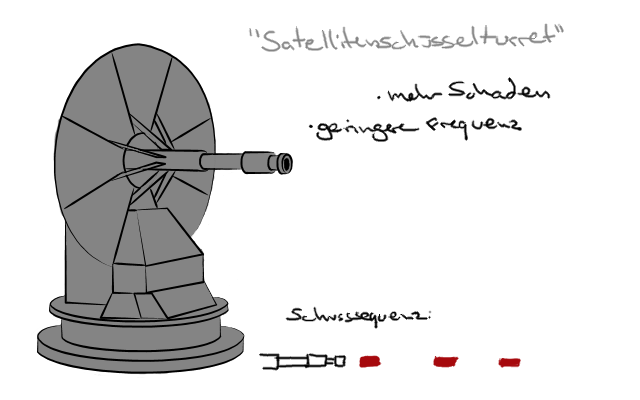 "Satellitenschüsselturret"
· mehr Schaden
· geringere Frequenz
Schusssequenz: